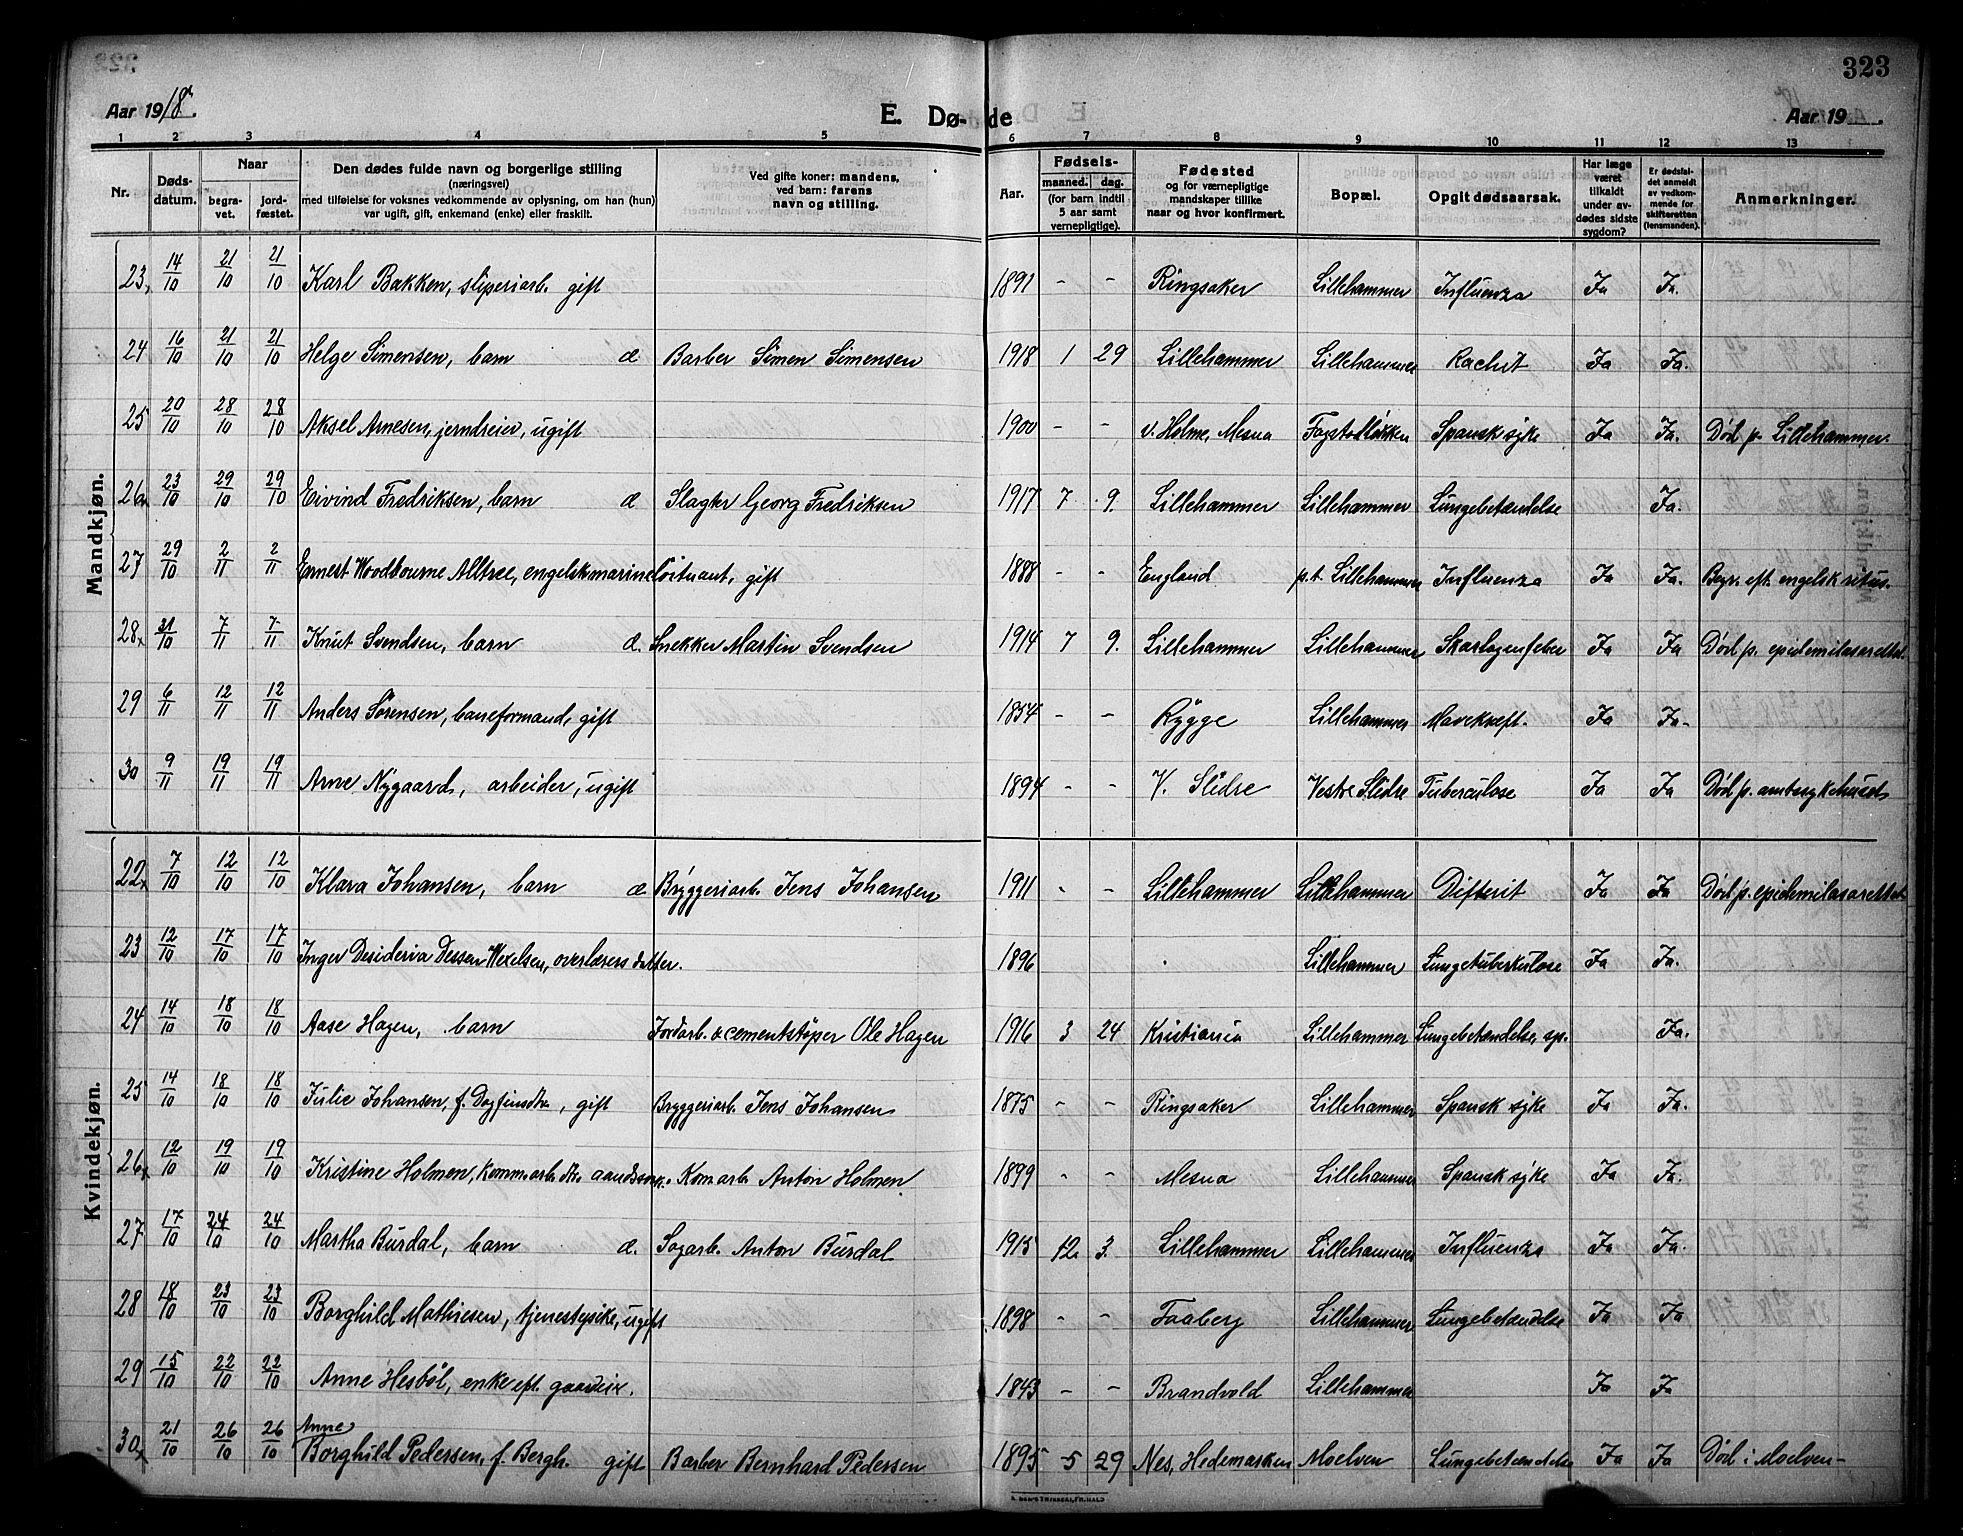 323
Aar 1918. E. Dø- de Aar 19
1 2 3 4 5 6 7 8 9 10 11 12 13
Nr. Døds-datum. Naar begra-vet. jord-fæstet. Den dødes fulde navn og borgerlige stilling (næringsvei) med tilføielse for voksnes vedkommende av oplysning, om han (hun) var ugift, gift, enkemand (enke) eller fraskilt. Ved gifte koner: mandens, ved barn: farens navn og stilling. Aar. Fødsels- maaned. dag. (for barn indtil 5 aar samt vernepligtige). Fødested og for værnepligtige mandskaper tillike naar og hvor konfirmert. Bopæl. Opgit dødsaarsak. Har læge været tilkaldt under av-dødes sidste sygdom? Er dødsfal-det anmeldt av vedkom-mende for skifteretten (lensmanden). Anmerkninger.
Mandkjøn.
23, 14/10 21/10 21/10 Karl Bakken, sliperiarb. gift 1891 - - Ringsaker Lillehammer Influenza Ja Ja.
24 16/10 21/10 21/10 Helge Simensen, barn Barber Simen Simensen 1918 1 29 Lillehammer Lillehammer Rachit Ja Ja.
25 20/10 28/10 28/10 Aksel Arnesen, jerndreier, ugift 1900 - - v. Holme, Mesna Fagstadløkken Spansk syke Ja Ja. Död p. Lillehammer.
26 23/10 29/10 29/10 Eivind Fredriksen, barn Slagter Georg Fredriksen 1917 7 9. Lillehammer Lillehammer Lungebetændelse Ja.
27 29/10 2/11 2/11 Ernest Woodbourne Alltree, engelsk marineløitnant, gift 1888 - - England p.t. Lillehammer Influenza Ja Ja. Begr. eft. engelsk ritus.
28x 31/10 7/11 7/11 Knut Svendsen, barn Snekker Martin Svendsen 1914 7 9. Lillehammer Lillehammer Skarlagensfeber Ja Ja Död p. epidemilasarettet.
29 6/11 12/11 12/11 Anders Sörensen, baneformand, gift 1854 - - Rygge Lillehammer Mavekreft. Ja Ja.
30 9/11 19/11 19/11 Arne Nygaard, arbeider, ugift 1894 - - V. Slidre Vestre Slidre Tuberculose Ja Ja Död p. amtssykehuset
Kvindekjøn.
22x 7/10 12/10 12/10 Klara Johansen, barn Bryggeriarb. Jens Johansen 1911 - - Lillehammer Lillehammer Difterit Ja Ja Död p. epidemilasarettet
23 12/10 17/10 17/10 Inger Desideria Dessen Wexelsen, overlærers datter. 1896 Lillehammer Lungetuberkulose Ja Ja.
24 14/10 18/10 18/10 Aase Hagen, barn Jordarb. & cementstöper Ole Hagen 1916 3 24 Kristiania Lillehammer Lungebetændelse, sp. Ja.
25 14/10 18/10 18/10 Julie Johansen, f. Dagfinsdtr., gift Bryggeriarb. Jens Johansen 1875 - - Ringsaker Lillehammer Spansk syke Ja Ja.
26x 12/10 19/10 19/10 Kristine Holmen, Komm.arb. dtr. aandssvak. Kom.arb. Anton Holmen 1899 - - Mesna Lillehammer Spansk syke Ja Ja.
27 17/10 24/10 24/10 Martha Burdal, barn Sagarb. Anton Burdal 1915 12 3. Lillehammer Lillehammer Influenza Ja Ja.
28 18/10 23/10 23/10 Borghild Mathiesen, tjenestepike, ugift 1898 - - Faaberg Lillehammer Lungebetændelse Ja Ja
29 15/10 22/10 22/10 Anne Hesböl, enke eft. gaardeier. 1843 - - Brandvold Lillehammer Ja Ja
30x 21/10 26/10 26/10 Anne Borghild Pedersen, f. Bergh. gift Barber Bernhard Pedersen 1895 5 29 Nes, Hedemarken Moelven Lungebetændelse Ja Ja Död i Moelven